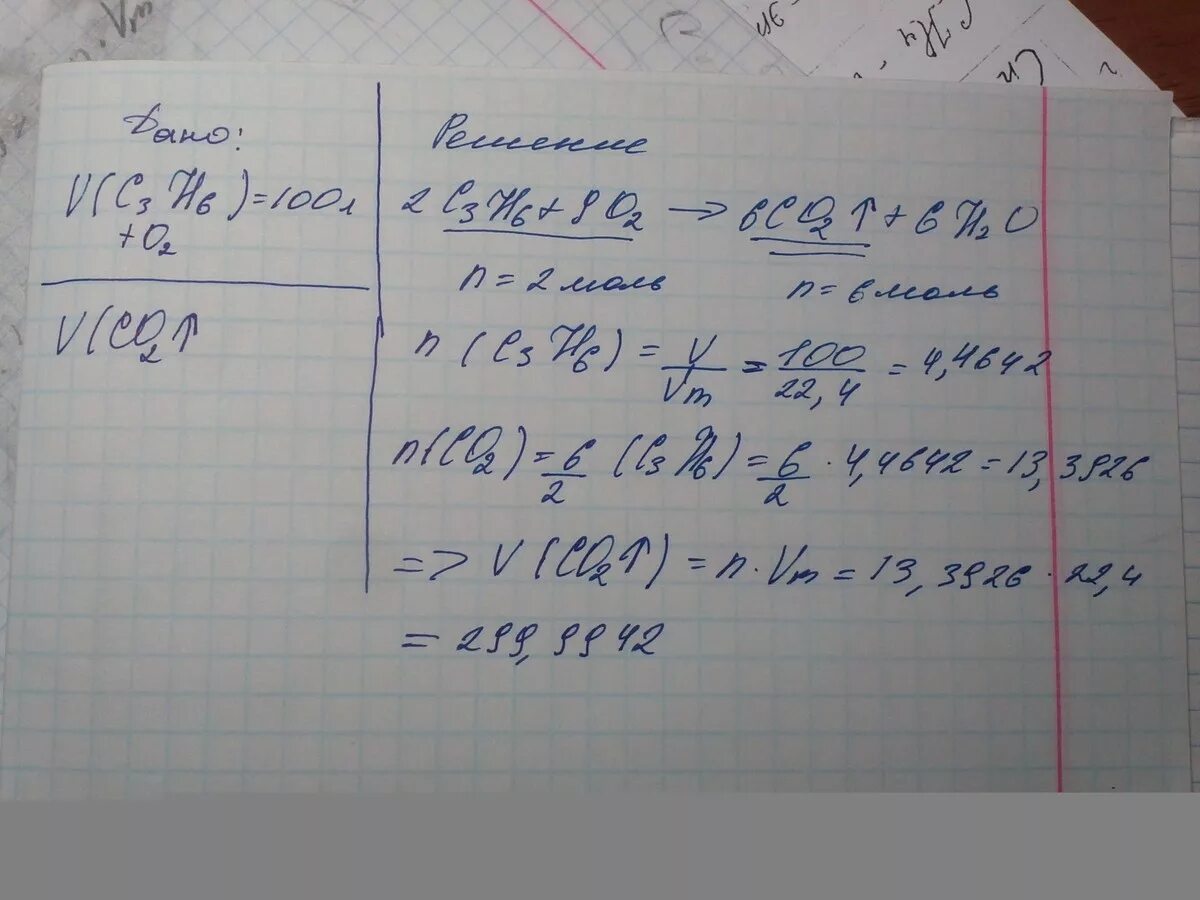 Vm
Дано:
V(C₃H₆)=100л
+O₂
V(CO₂↑
Решение
2C₃H₆+9O₂ → 6CO₂↑+6H₂O
n=2 моль n=6 моль
n (C₃H₆) = V/Vm = 100/22,4 = 4,4642
n(CO₂) = 6/2 (C₃H₆) = 6/2 · 4,4642 = 13,3926
=> V(CO₂↑) = n·Vm = 13,3926 · 22,4
= 299,9942